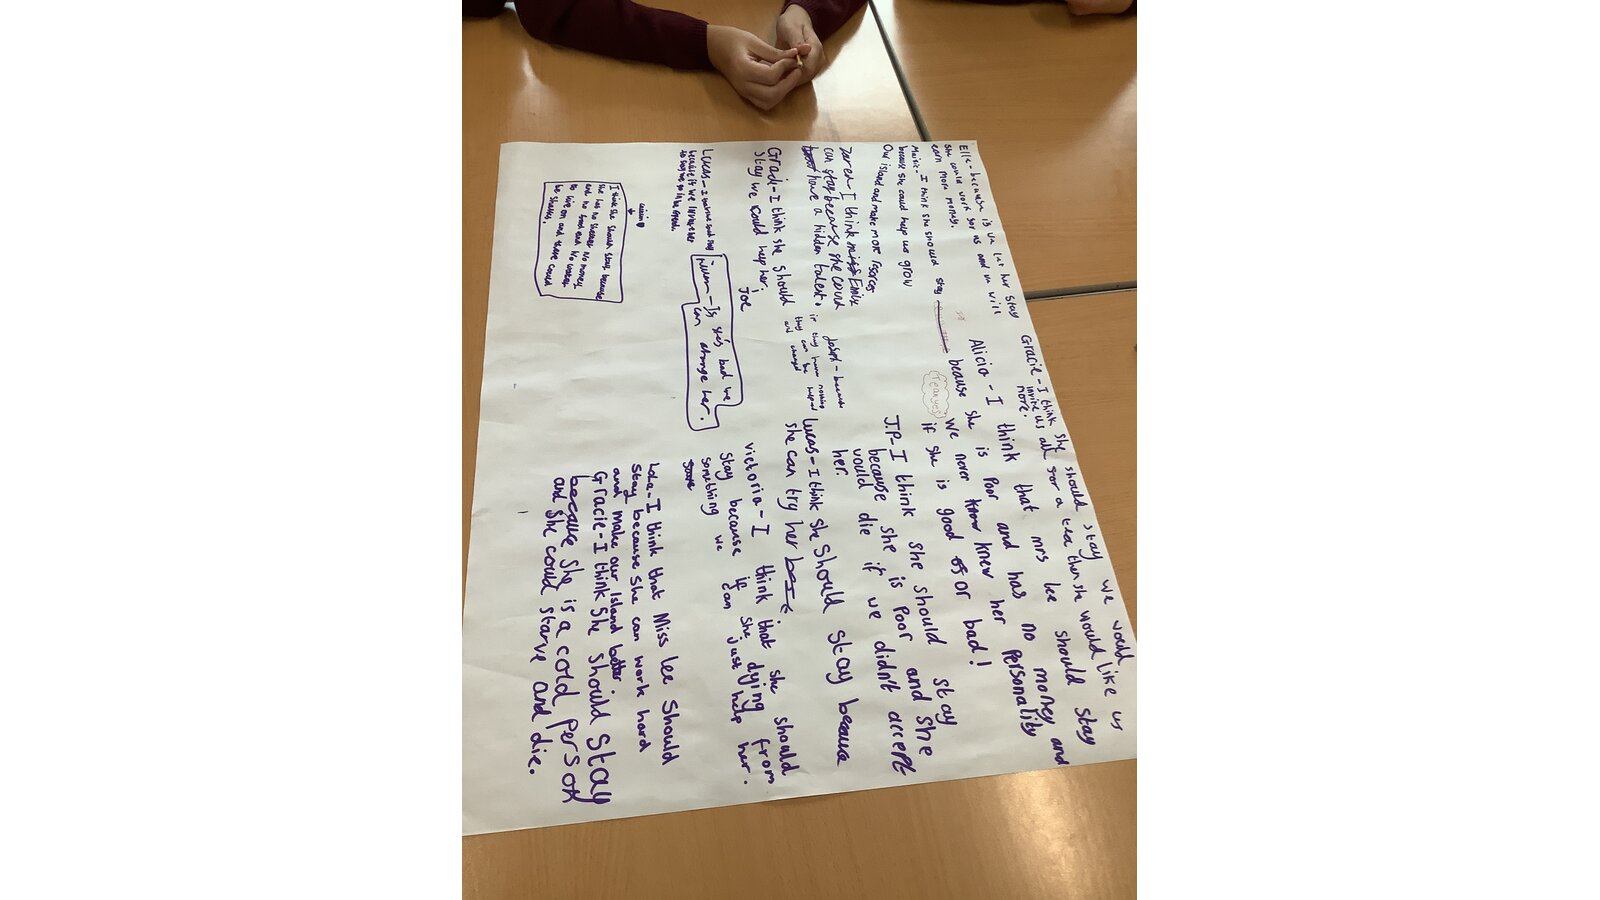 Elle-because is we let her stay
she could work for us and we will
earn more money.
Maisie- I think she should stay
because she could help us grow
Our island and make more resorces
Zaren-I think miss
can stay because she could
have a hidden talent.
Gracie-I think she should
stay we could help her.
Joe
Lucas-I
I think she should stay because
she has no shelter no money
and no food and no water
to live on and there could
be sharks.
-If she's bad we
can change her.
Joseph-because
if they have nothing
they can be helped
and changed
Gracie-I think she should stay we would like us
invite us all for a tea then she would
more.
Alicia-I think that mrs lee should stay
she is Poor and has no money and
because we never know knew her Personality
if she is good of or bad!
Tearyes
J.P-I think she should stay
because she is Poor and she
would die if we didn't accept
her.
Lucas-I think she Should stay because
she can try her
victoria-I think that she should
stay because if she dying from
something we can just help her.
Lola-I think that Miss Lee Should
Stay because she can work hard
and make our Island better.
Gracie-I think She Should Stay
because She is a cold Person
and she could starve and die.